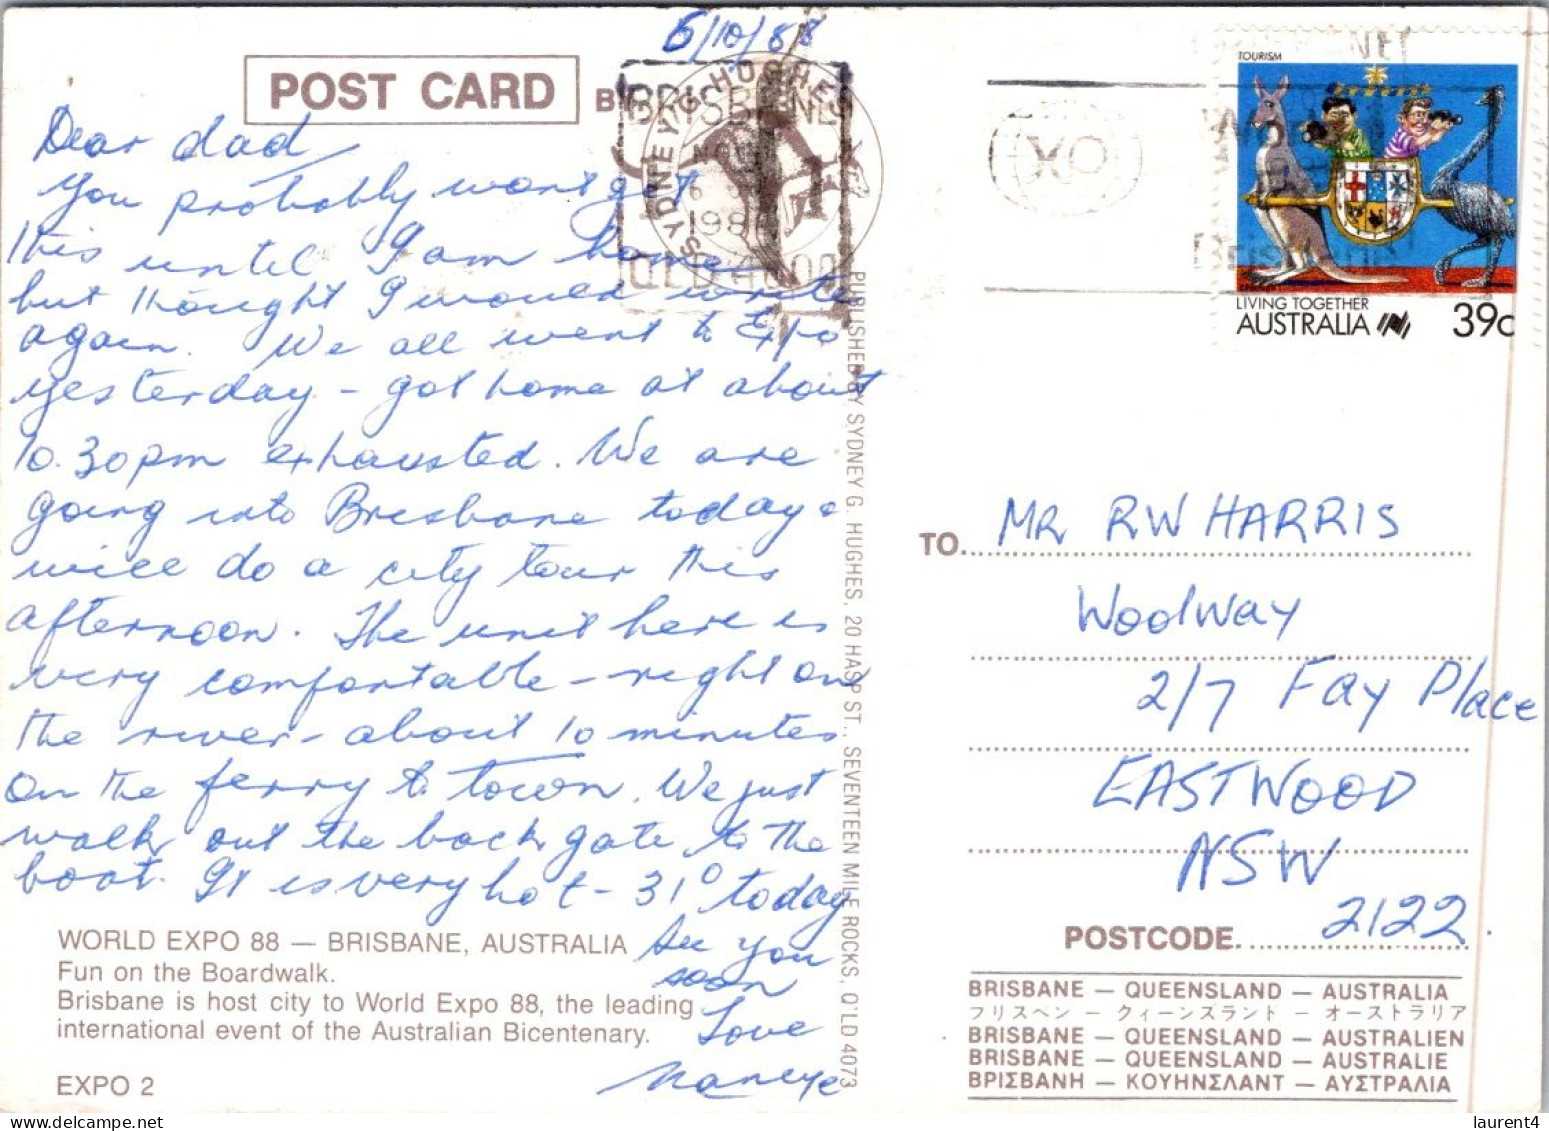 6/10/88
POST CARD
Dear dad
You probably won't get
this until I am home
but thought I would write
again. We all went to Expo
yesterday - got home at about
10.30pm exhausted. We are
going into Brisbane today &
will do a city tour this
afternoon. The unit here is
very comfortable - right on
the river - about 10 minutes
on the ferry to town. We just
walk out the back gate to the
boat. It is very hot - 31° today
See you
soon
Love
WORLD EXPO 88 — BRISBANE, AUSTRALIA
Fun on the Boardwalk.
Brisbane is host city to World Expo 88, the leading
international event of the Australian Bicentenary.
EXPO 2
SYDNEY G. HUGHES
BRISBANE
1988
QLD 4000
PUBLISHED BY SYDNEY G. HUGHES, 20 HASP ST., SEVENTEEN MILE ROCKS, Q'LD 4073
TOURISM
LIVING TOGETHER
AUSTRALIA 39c
TO MR RW HARRIS
Woolway
2/7 Fay Place
EASTWOOD
NSW
POSTCODE 2122.
BRISBANE — QUEENSLAND — AUSTRALIA
フリスヘン — クィーンスラント — オーストラリア
BRISBANE — QUEENSLAND — AUSTRALIEN
BRISBANE — QUEENSLAND — AUSTRALIE
ΒΡΙΣΒΑΝΗ — ΚΟΥΗΝΣΛΑΝΤ — ΑΥΣΤΡΑΛΙΑ
laurent4